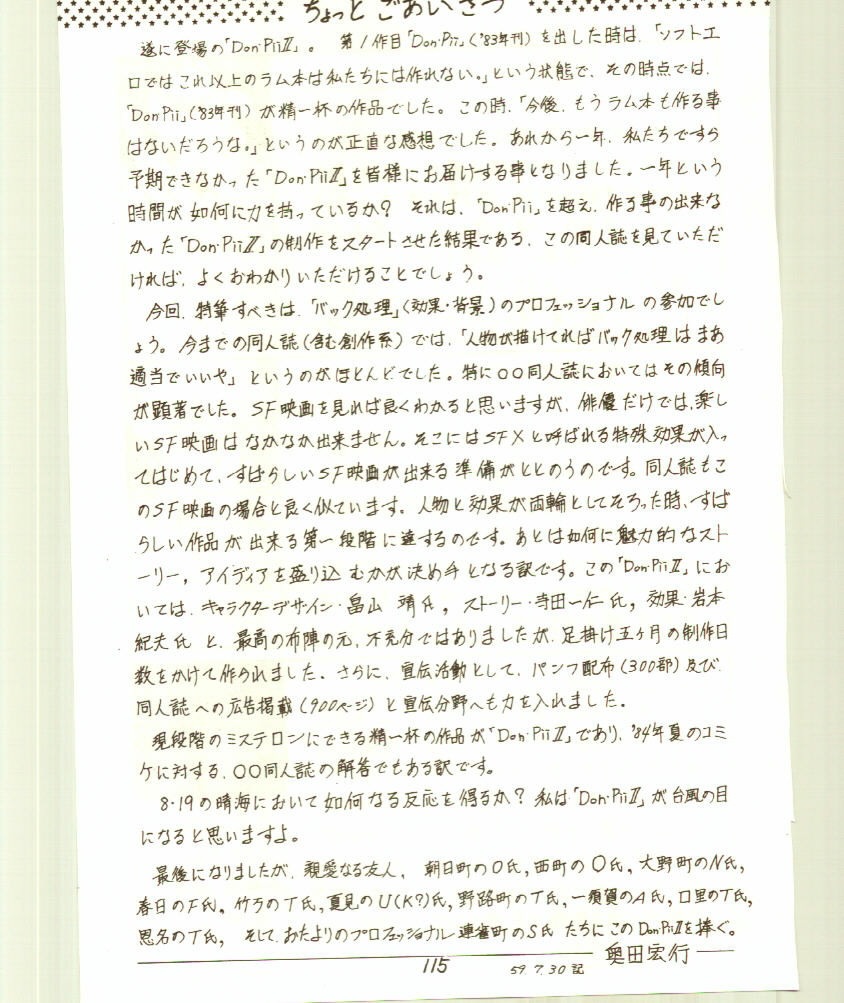 ちょっと ごあいさつ
遂に登場の「Don・PiiⅡ」。 第1作目「Don・Pii」('83年刊)を出した時は、「ソフトエ
ロではこれ以上のラム本は私たちには作れない。」という状態で、その時点では、
「Don・Pii」('83年刊)が精一杯の作品でした。この時、「今後、もうラム本も作る事
はないだろうな。」というのが正直な感想でした。あれから一年、私たちですら
予期できなかった「Don・PiiⅡ」を皆様にお届けする事となりました。一年という
時間が如何に力を持っているか? それは、「Don・Pii」を超え、作る事の出来な
かった「Don・PiiⅡ」の制作をスタートさせた結果である、この同人誌を見ていただ
ければ、よくおわかりいただけることでしょう。
今回、特筆すべきは、「バック処理」(効果・背景)のプロフェッショナルの参加でし
ょう。今までの同人誌(含む創作系)では、「人物が描けてればバック処理はまあ
適当でいいや」というのがほとんどでした。特に○○同人誌においてはその傾向
が顕著でした。SF映画を見れば良くわかると思いますが、俳優だけでは、楽し
いSF映画はなかなか出来ません。そこにはSFXと呼ばれる特殊効果が入っ
てはじめて、すばらしいSF映画が出来る準備がととのうのです。同人誌もこ
のSF映画の場合と良く似ています。人物と効果が両輪としてそろった時、すば
らしい作品が出来る第一段階に達するのです。あとは如何に魅力的なスト
ーリー，アイディアを盛り込むかが決め手となる訳です。この「Don・PiiⅡ」にお
いては、キャラクターデザイン・畠山 靖氏，ストーリー・寺田一仁氏，効果・岩本
紀夫氏 と、最高の布陣の元、不充分ではありましたが、足掛け五ヶ月の制作日
数をかけて作られました。さらに、宣伝活動として、パンフ配布(300部)及び、
同人誌への広告掲載(900ページ)と宣伝分野へも力を入れました。
現段階のミステロンにできる精一杯の作品が「Don・PiiⅡ」であり、'84年夏のコミ
ケに対する、○○同人誌の解答でもある訳です。
8・19の晴海において如何なる反応を得るか?私は「Don・PiiⅡ」が台風の目
になると思いますよ。
最後になりましたが、親愛なる友人、 朝日町のO氏，西町のO氏，大野町のN氏，
春日のF氏，竹ラのT氏，夏見のU(K?)氏，野路町のT氏，一須賀のA氏，口里のT氏，
恩名のT氏， そして、おたよりのプロフェッショナル連雀町のS氏 たちにこのDon・PiiⅡを捧ぐ。
奥田宏行
115
59.7.30記